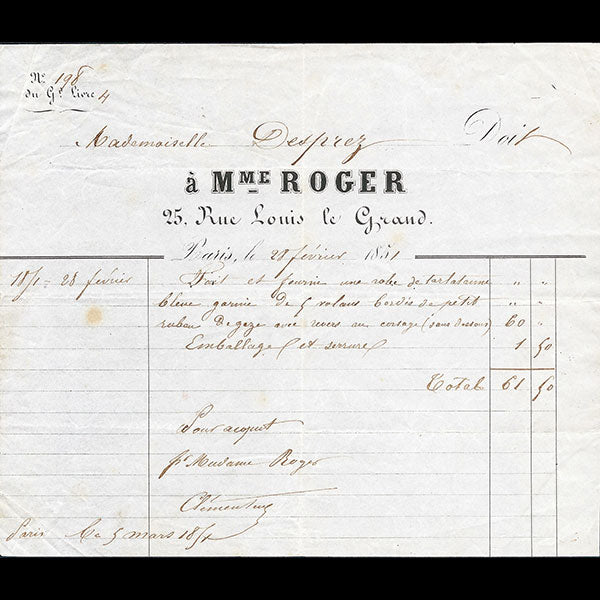 No. 198
du Gd. Livre 4
Mademoiselle Desprez Doit
à MME ROGER
25, Rue Louis le Grand.
Paris, le 28 février 1851
1851 - 28 février Fait et fournie une robe de tarlatanne " "
bleue garnie de 5 volans bordés de petit " "
ruban de gaze avec revers au corsage (sans dessous) 60 "
Emballage et serrure 1 50
Total 61 50
Pour acquet
pr Madame Roger
Clémentine
Paris le 5 mars 1851